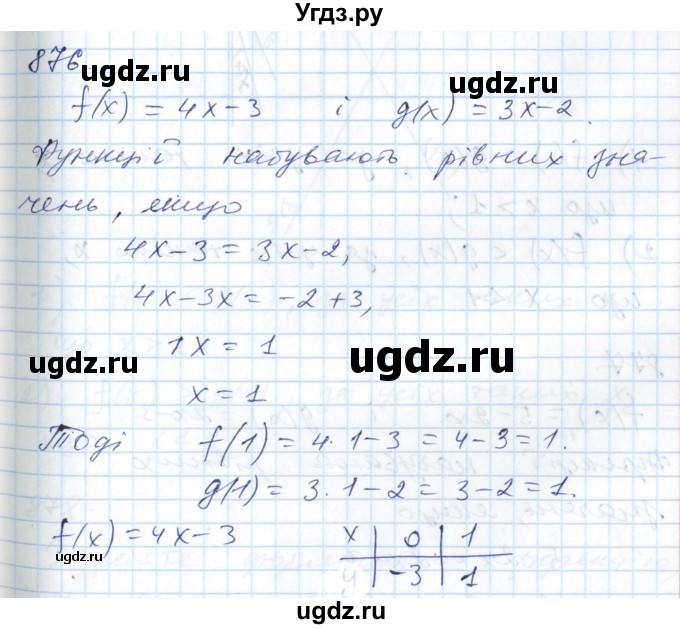 Угдз.ру
876
ugdz.ru ugdz.ru
f(x) = 4x-3 і g(x) = 3x-2.
Функції набувають рівних зна-
чень, якщо
4x-3 = 3x-2,
4x-3x = -2+3,
ugdz.ru 1x = 1 ugdz.ru
x = 1
Тоді f(1) = 4·1-3 = 4-3 = 1.
g(1) = 3·1-2 = 3-2 = 1.
f(x) = 4x-3 x | 0 | 1
ugdz.ru y | -3 | 1
ugdz.ru